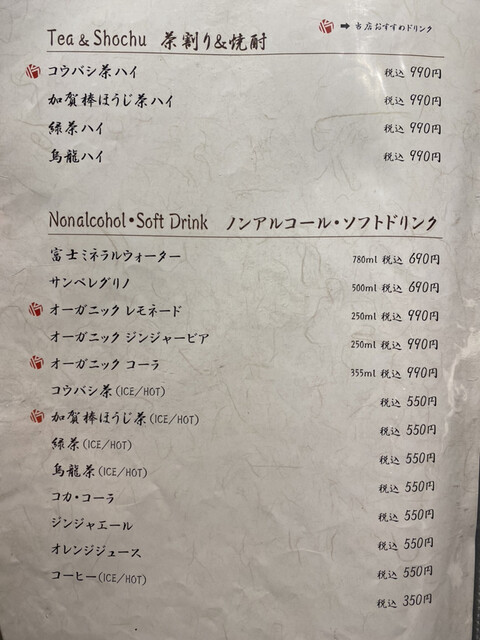 ➡ 当店おすすめドリンク
Tea & Shochu 茶割り&焼酎
コウバシ茶ハイ 税込 990円
加賀棒ほうじ茶ハイ 税込 990円
緑茶ハイ 税込 990円
烏龍ハイ 税込 990円
Nonalcohol・Soft Drink ノンアルコール・ソフトドリンク
富士ミネラルウォーター 780ml 税込 690円
サンペレグリノ 500ml 税込 690円
オーガニック レモネード 250ml 税込 990円
オーガニック ジンジャービア 250ml 税込 990円
オーガニック コーラ 355ml 税込 990円
コウバシ茶(ICE/HOT) 税込 550円
加賀棒ほうじ茶(ICE/HOT) 税込 550円
緑茶(ICE/HOT) 税込 550円
烏龍茶(ICE/HOT) 税込 550円
コカ・コーラ 税込 550円
ジンジャエール 税込 550円
オレンジジュース 税込 550円
コーヒー(ICE/HOT) 税込 350円